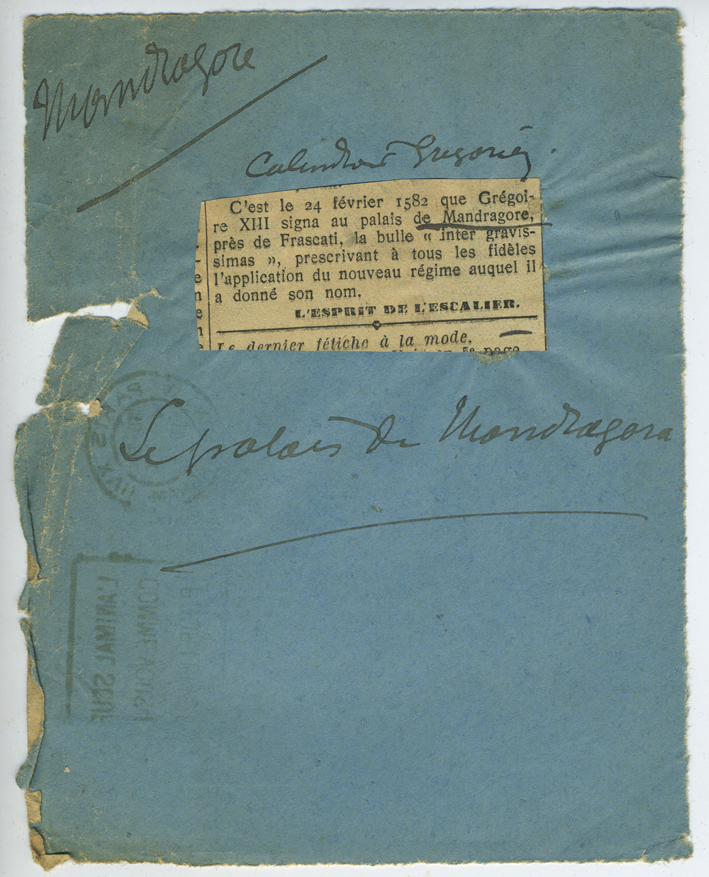 Mandragore
Calendrier Grégorien.
C'est le 24 février 1582 que Grégoi-
re XIII signa au palais de Mandragore,
près de Frascati, la bulle « Inter gravis-
simas », prescrivant à tous les fidèles
l'application du nouveau régime auquel il
a donné son nom.
L'ESPRIT DE L'ESCALIER.
Le dernier fétiche à la mode.
Le palais de Mandragora
PARIS
XVII
COMME VOUS
L'ANIMAL SOUF